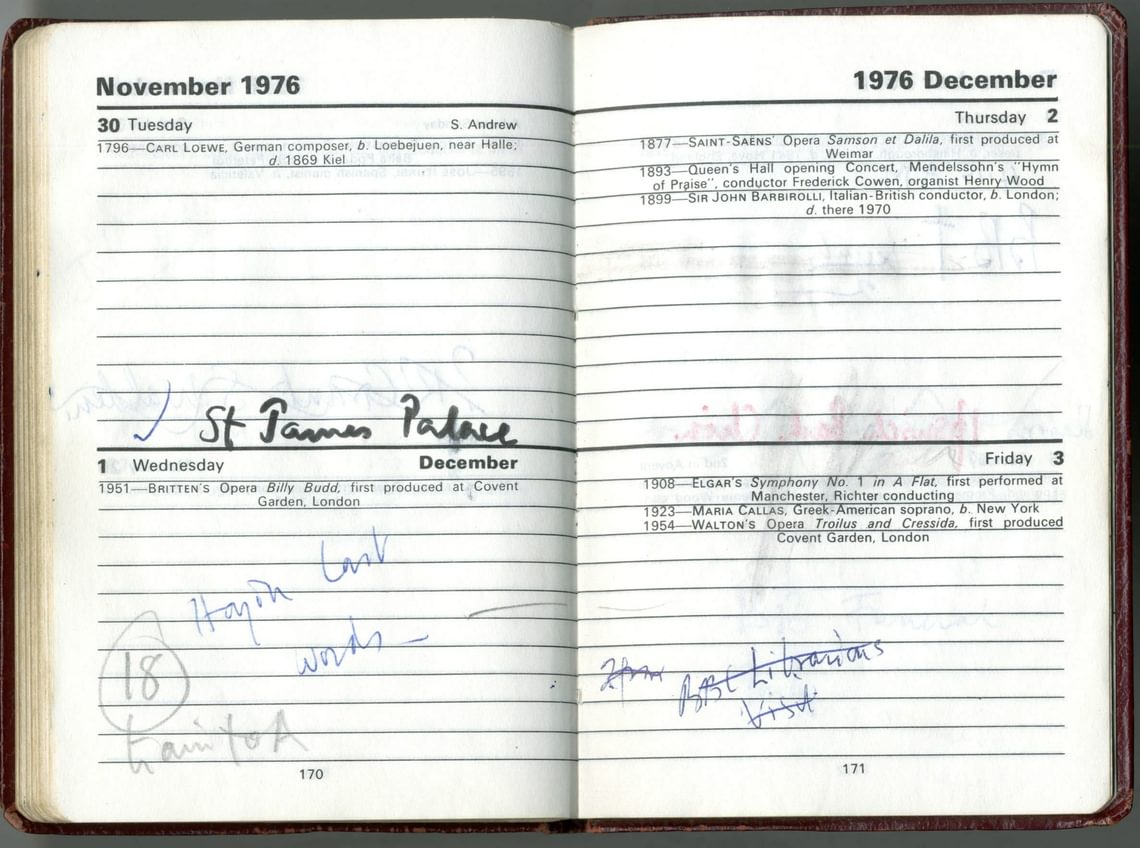 November 1976
30 Tuesday S. Andrew
1796—CARL LOEWE, German composer, b. Loebejuen, near Halle;
d. 1869 Kiel
St James Palace
1 Wednesday December
1951—BRITTEN'S Opera Billy Budd, first produced at Covent
Garden, London
Haydn Last
Words —
18
train to A
170
1976 December
Thursday 2
1877—SAINT-SAËNS' Opera Samson et Dalila, first produced at
Weimar
1893—Queen's Hall opening Concert, Mendelssohn's "Hymn
of Praise", conductor Frederick Cowen, organist Henry Wood
1899—SIR JOHN BARBIROLLI, Italian-British conductor, b. London;
d. there 1970
Friday 3
1908—ELGAR'S Symphony No. 1 in A Flat, first performed at
Manchester, Richter conducting
1923—MARIA CALLAS, Greek-American soprano, b. New York
1954—WALTON'S Opera Troilus and Cressida, first produced
Covent Garden, London
Librarians
Visit
171